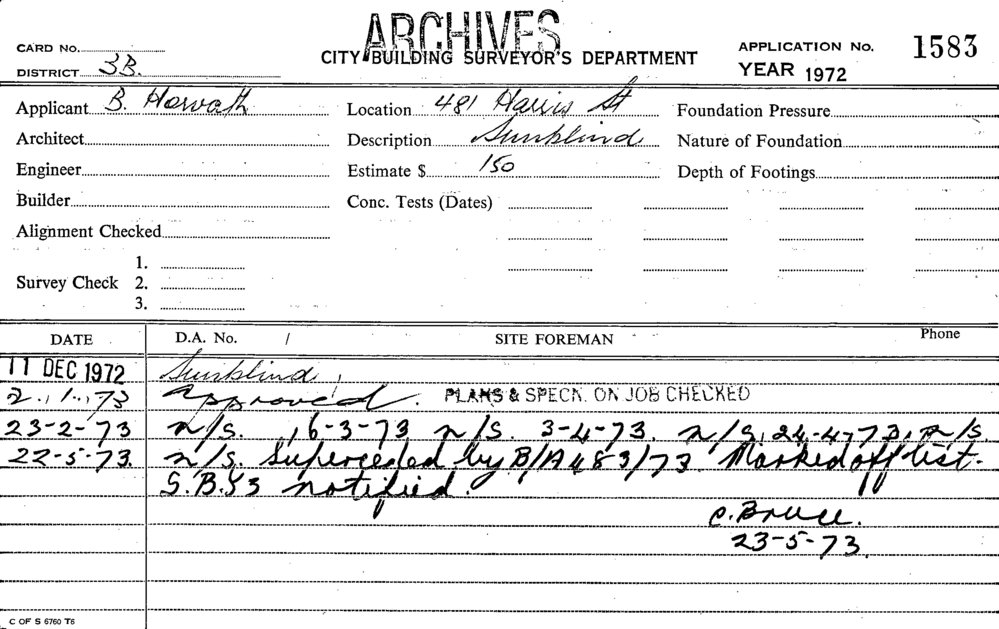 ARCHIVES
CARD No. CITY BUILDING SURVEYOR'S DEPARTMENT APPLICATION No. 1583
DISTRICT 3B. YEAR 1972
Applicant B. Horvath Location 481 Harris St Foundation Pressure
Architect Description Sunblind Nature of Foundation
Engineer Estimate $ 150 Depth of Footings
Builder Conc. Tests (Dates)
Alignment Checked
1.
Survey Check 2.
3.
DATE D.A. No. / SITE FOREMAN Phone
11 DEC 1972 Sunblind
2.1.73 Approved. PLANS & SPECN. ON JOB CHECKED
23-2-73 n/s. 16-3-73 n/s. 3-4-73. n/s, 24-4-73, n/s
22-5-73. n/s. Superceded by B/A 483/73 Marked off list.
S.B.S3 notified.
C. Bruce.
23-5-73
C OF S 6760 T6